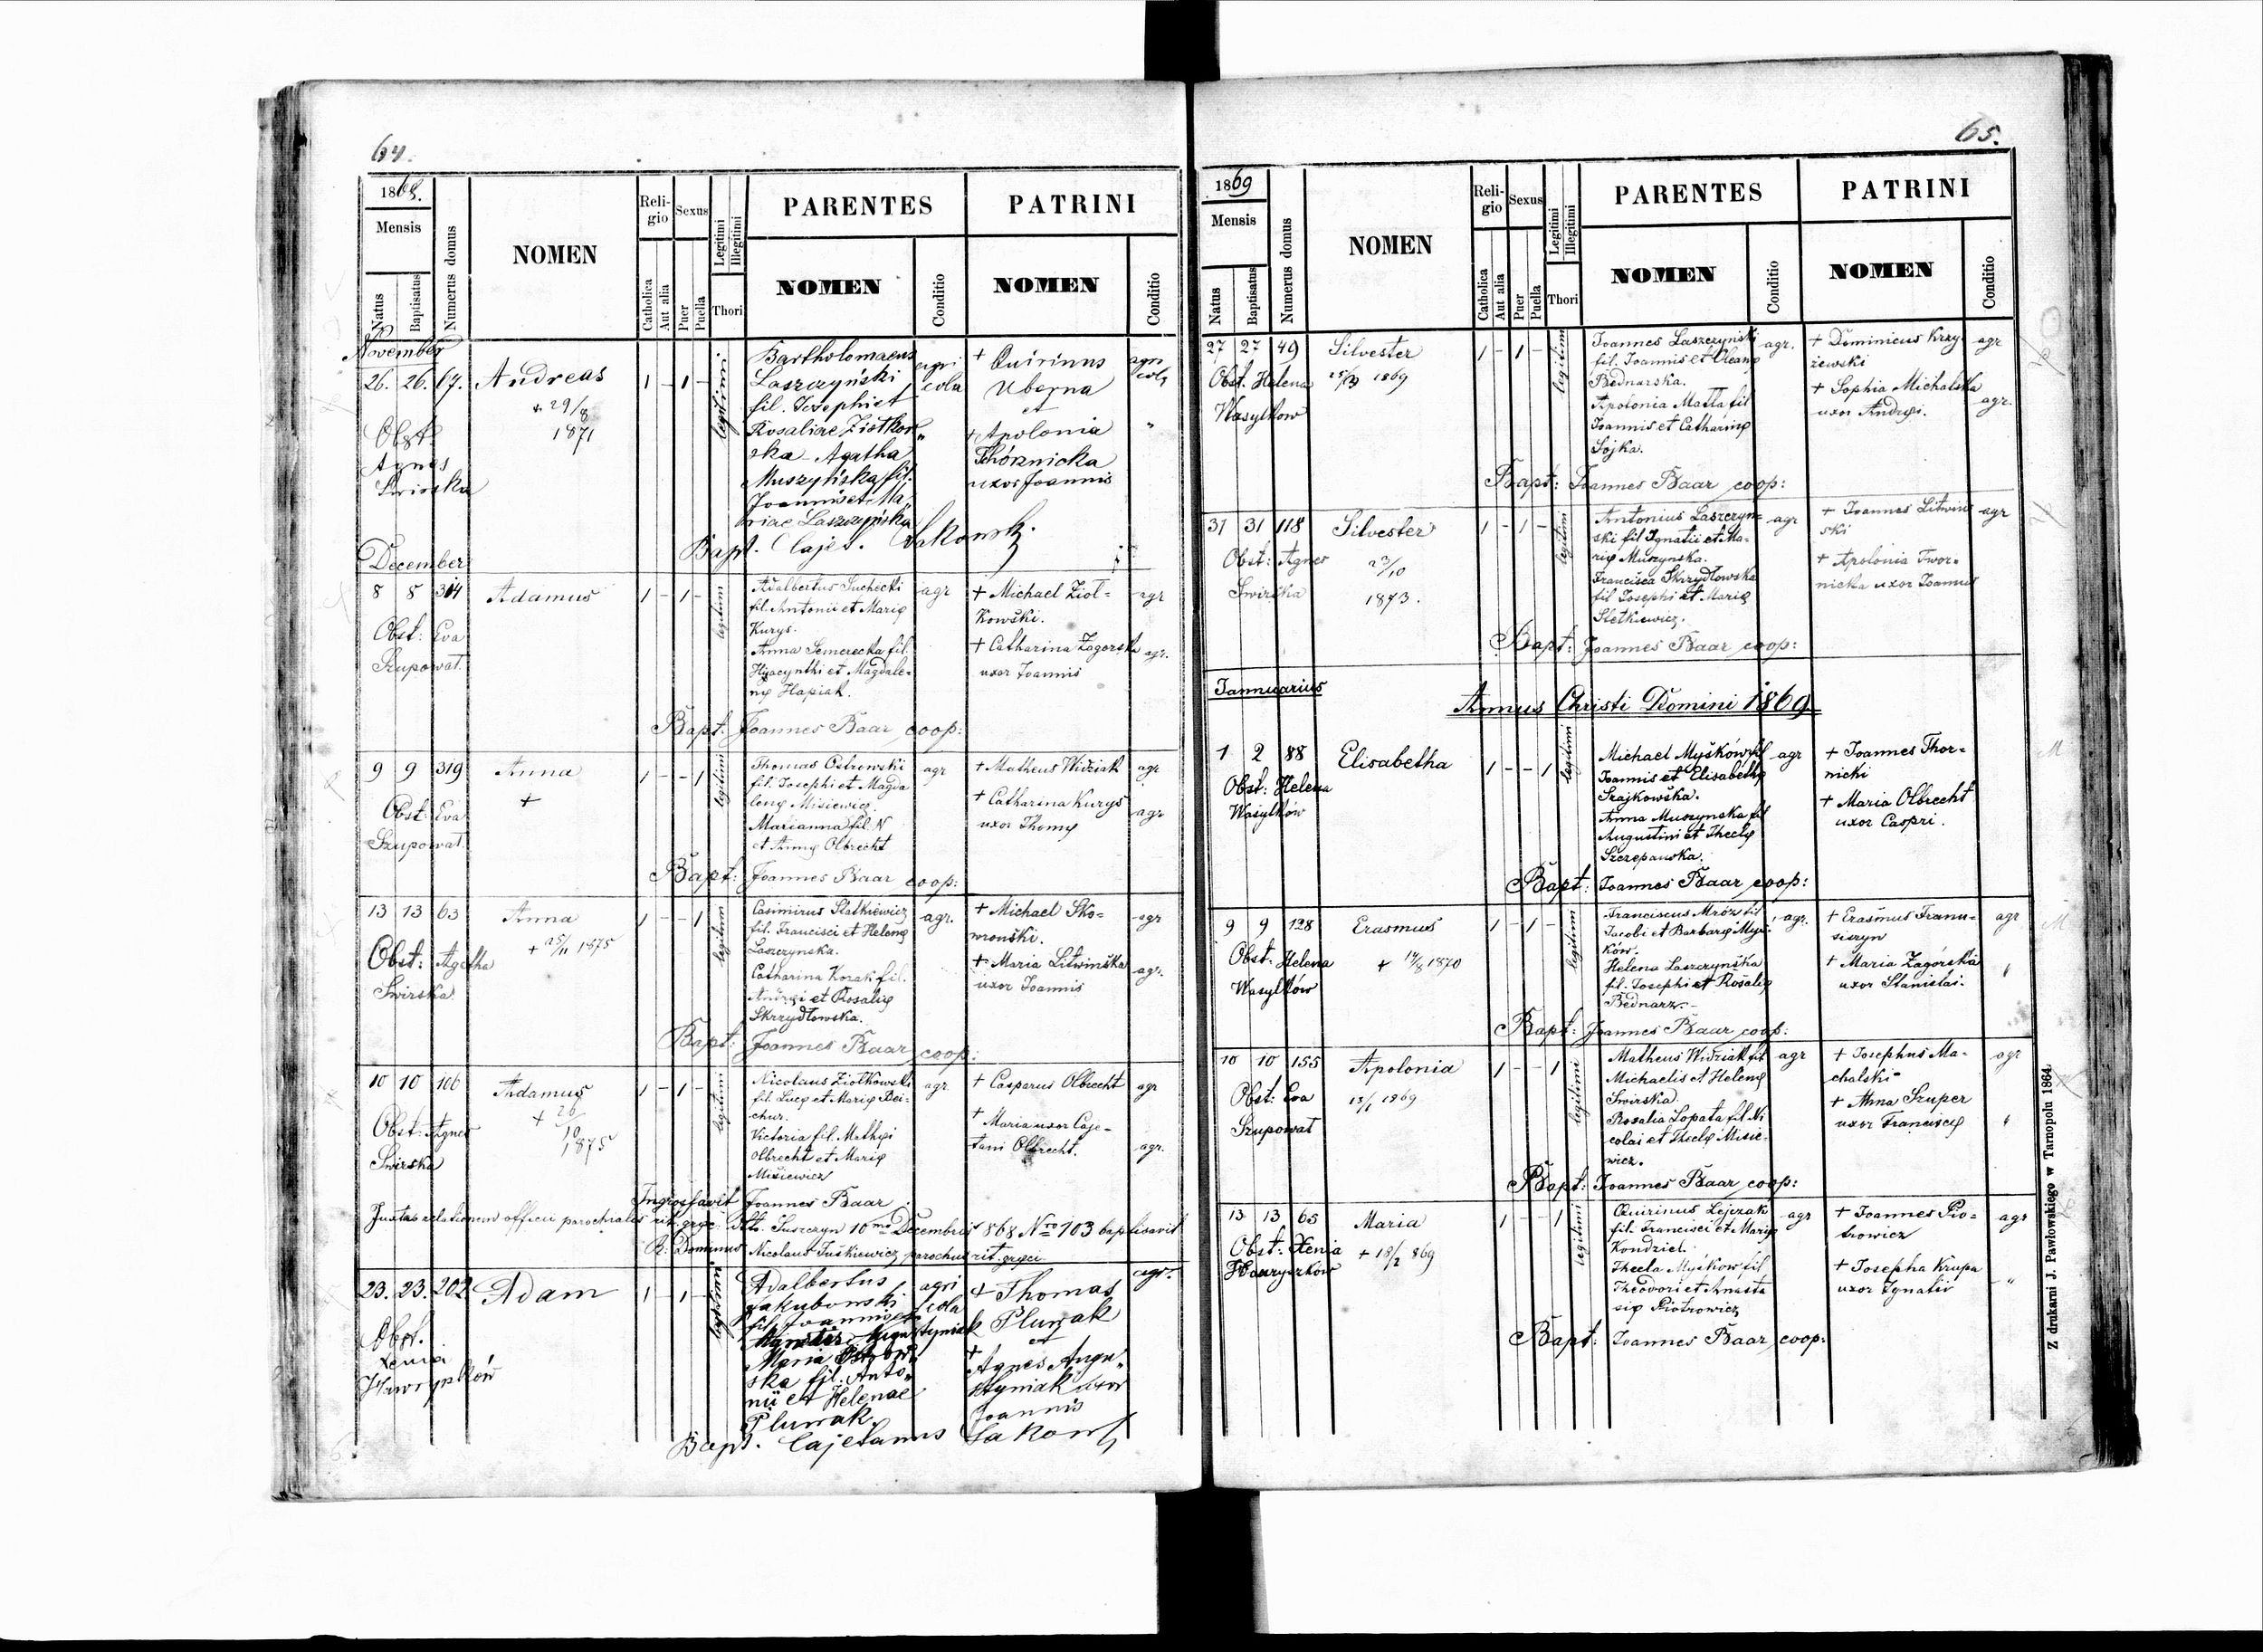 64.
1868.
Mensis
Natus
Baptisatus
Numerus domus
NOMEN
Religio
Catholica
Aut alia
Sexus
Puer
Puella
Legitimi
Illegitimi
Thori
PARENTES
NOMEN
Conditio
PATRINI
NOMEN
Conditio
November
26. 26. 17. Andreas
+ 29/8
1871
Obst.
Agnes
Swirska
1 - 1 -
legitimi
Bartholomaeus
Laszczyński
fil. Josephi et
Rosaliae Ziołkow
ska - Agatha
Muszyńska fil.
Joannis et Ma
riae Laszczyńska
agri
cola
+ Quirinus
Uberna
et
+ Apolonia
Thórznicka
uxor Joannis
agri
cola
Bapt. Cajet. Sakowski
December
8 8 314 Adamus
Obst: Eva
Szupowat.
1 - 1 -
legitimi
Adalbertus Suchecki
fil. Antonii et Marię
Kurys.
Anna Semerecka fil.
Hyacynthi et Magdale-
nę Hapiak.
agr
+ Michael Ziol-
kowski.
+ Catharina Zagorska
uxor Joannis
agr
agr.
Bapt: Joannes Baar coop:
9 9 319 Anna
+
Obst: Eva
Szupowat.
1 - - 1
legitimi
Thomas Ostrowski
fil. Josephi et Magda
lenę Misiewicz.
Marianna fil. N
et Annę Olbrecht
agr
+ Matheus Widziak
+ Catharina Kurys
uxor Thomę
agr
agr
Bapt: Joannes Baar coop:
13 13 63 Anna
+ 25/11 1875
Obst: Agatha
Swirska.
1 - - 1
legitimi
Casimirus Statkiewicz
fil. Francisci et Helenę
Laszczynska.
Catharina Kozak fil.
Andręi et Rosalię
Skrzydłowska.
agr.
+ Michael Sko-
wronski.
+ Maria Litwinska
uxor Joannis
agr
agr.
Bapt: Joannes Baar coop:
10 10 106 Adamus
+ 26/10
1875
Obst: Agnes
Swirska
1 - 1 -
legitimi
Nicolaus Ziołkowski
fil. Lucę et Marię Dei-
chur.
Victoria fil. Mathęi
Olbrecht et Marię
Misiewicz
agr.
+ Casparus Olbrecht
+ Maria uxor Caje-
tani Olbrecht.
agr
agr.
Ingrossavit Joannes Baar
Juxta relationem officii parochialis rit. gręc. dto. Suszczyn 10ma Decembris 868 Nro 103 baptisavit
R. Dominus Nicolaus Juskiewicz parochus rit. gręci
23. 23. 202 Adam
Obst.
Xenia
Hawryszków
1 - 1 -
legitimi
Adalbertus
Jakubowski
fil. Joannis et
Augustyniak
Maria Ostrow
ska fil. Anto
nii et Helenae
Pluwak.
agri
cola
+ Thomas
Pluwak
et
+
Agnes Augu
styniak uxor
Joannis
agr.
Bapt. Cajetanus Sakowski
65.
1869
Mensis
Natus
Baptisatus
Numerus domus
NOMEN
Religio
Catholica
Aut alia
Sexus
Puer
Puella
Legitimi
Illegitimi
Thori
PARENTES
NOMEN
Conditio
PATRINI
NOMEN
Conditio
27 27 49 Silvester
1869
Obst. Helena
Wasylkow
1 - 1 -
legitimi
Joannes Laszczynski
fil. Joannis et
Bednarska.
Apolonia Matla fil
Joannis et Catharinę
Sojka.
agr.
+ Dominicus Krzy-
żewski
+ Sophia Michalska
uxor Andręi.
agr
agr.
Bapt: Joannes Baar coop:
31 31 118 Silvester
23/10
1873.
Obst: Agnes
Swirska
1 - 1 -
legitimi
Antonius Laszczyn-
ski fil Ignatii et Ma-
rię Muszynska.
Francisca Skrzydłowska
fil Josephi et Marię
Stetkiewicz.
agr
+ Joannes Litwin
ski
+ Apolonia Twor-
nicka uxor Joannis
agr
Bapt: Joannes Baar coop:
Jannuarius
Annus Christi Domini 1869.
1 2 88 Elisabetha
Obst: Helena
Wasylków
1 - - 1
legitimi
Michael Myśkówski
Joannis et Elisabethę
Szajkowska.
Anna Muszynska fil
Augustini et Theclę
Szczepanska.
agr
+ Joannes Thor-
nicki
+ Maria Olbrecht
uxor Caspri.
Bapt: Joannes Baar coop:
9 9 128 Erasmus
+ 14/8 1870
Obst. Helena
Wasylków
1 - 1 -
legitimi
Franciscus Mróz fil
Jacobi et Barbarę Myś-
ków.
Helena Laszczyńska
fil. Josephi et Rosalię
Bednarz.
agr.
+ Erasmus Franu-
siszyn
+ Maria Zagórska
uxor Stanislai.
agr
Bapt: Joannes Baar coop:
10 10 155 Apolonia
13/1 1869
Obst: Eva
Szupowat
1 - - 1
legitimi
Matheus Widziak fil
Michaelis et Helenę
Swirska.
Rosalia Lopata fil Ni
colai et Theclę Misie-
wicz.
agr
+ Josephus Ma-
chalski
+ Anna Szuper
uxor Franciscę
agr
Bapt: Joannes Baar coop:
13 13 65 Maria
+ 18/2 869
Obst: Xenia
Hawryszków
1 - - 1
legitimi
Quirinus Lejczak
fil. Francisci et Marię
Kondziel.
Thecla Myśkow fil
Theodori et Anasta
się Piotrowicz
agr
+ Joannes Pio-
trowicz
+ Josepha Krupa
uxor Ignatii
agr
"
Bapt: Joannes Baar coop:
Z drukarni J. Pawłowskiego w Tarnopolu 1864.